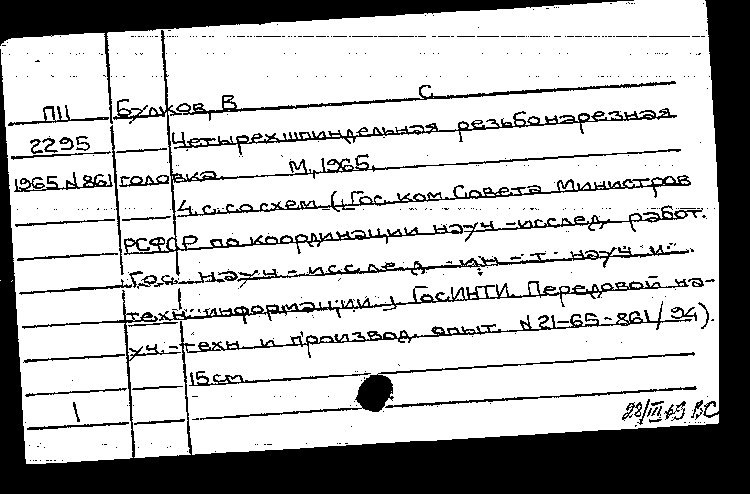 П11 Булков, В С
2295 Четырехшпиндельная резьбонарезная
1965 N 861 головка. М., 1965.
4 с. со схем. (Гос. ком. Совета Министров
РСФСР по координации науч.-исслед. работ.
Гос. науч.-исслед. ин-т науч. и
техн. информации. ГосИНТИ. Передовой на-
уч.-техн. и производ. опыт. N 21-65-861/94).
15 см.
1